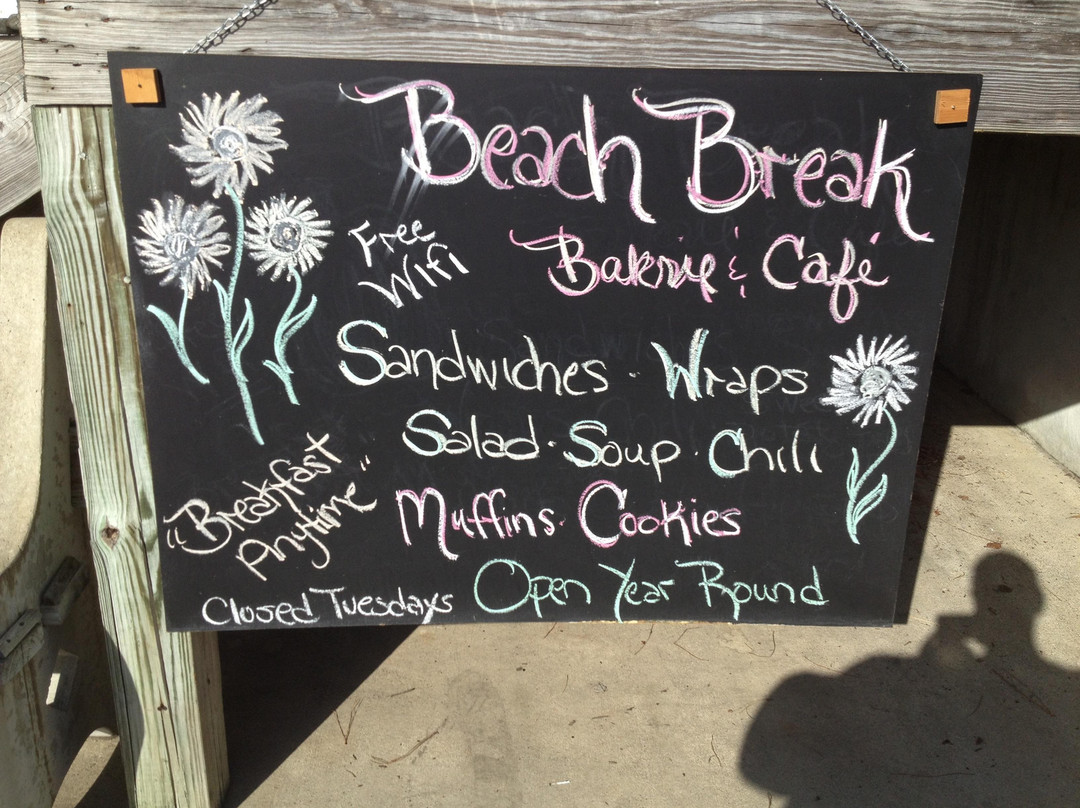 Beach Break
Bakerie & Café
Free
Wifi
Sandwiches · Wraps
Salad · Soup · Chili
Muffins · Cookies
"Breakfast
Anytime"
Closed Tuesdays
Open Year Round